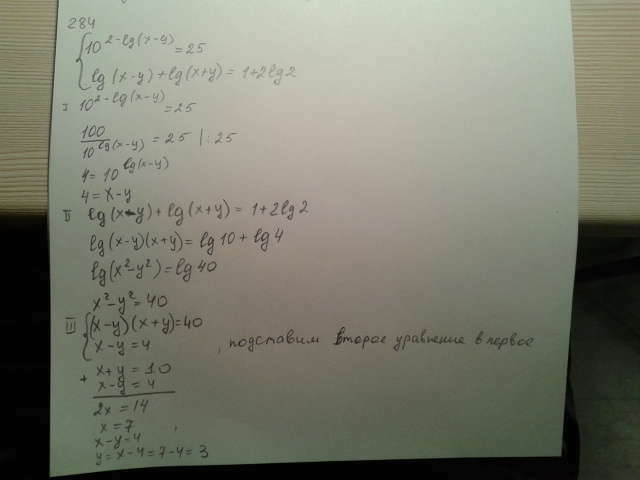 284
{10^2-lg(x-y) = 25
lg(x-y)+lg(x+y) = 1+2lg2
I 10^2-lg(x-y) = 25
100/10^lg(x-y) = 25 |:25
4 = 10^lg(x-y)
4 = x-y
II lg(x-y)+lg(x+y) = 1+2lg2
lg(x-y)(x+y) = lg10+lg4
lg(x²-y²) = lg40
x²-y² = 40
III {(x-y)(x+y)=40
x-y = 4 , подставим второе уравнение в первое
+ x+y = 10
x-y = 4
2x = 14
x = 7 ,
x-y=4
y = x-4 = 7-4 = 3